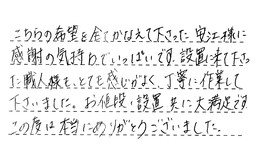 こちらの希望を全てかなえて下さった 宝江様に
感謝の気持ちでいっぱいです。設置に来て下さっ
た職人様も、とても感じがよく、丁寧に作業して
下さいました。お値段・設置 共に大満足です。
この度は本当にありがとうございました。